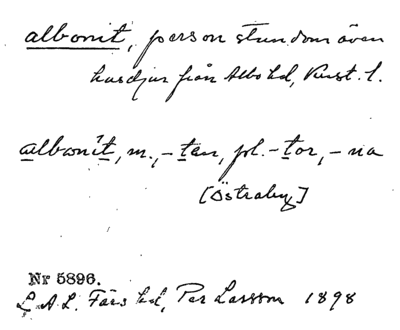 albonit, person stundom även
husdjur från Albo hd, Kurst. l.
albonit, m., -ten, pl. -tor, -na
[Östraby]
Nr 5896.
L.A.L. Färs hd, Per Larsson 1898